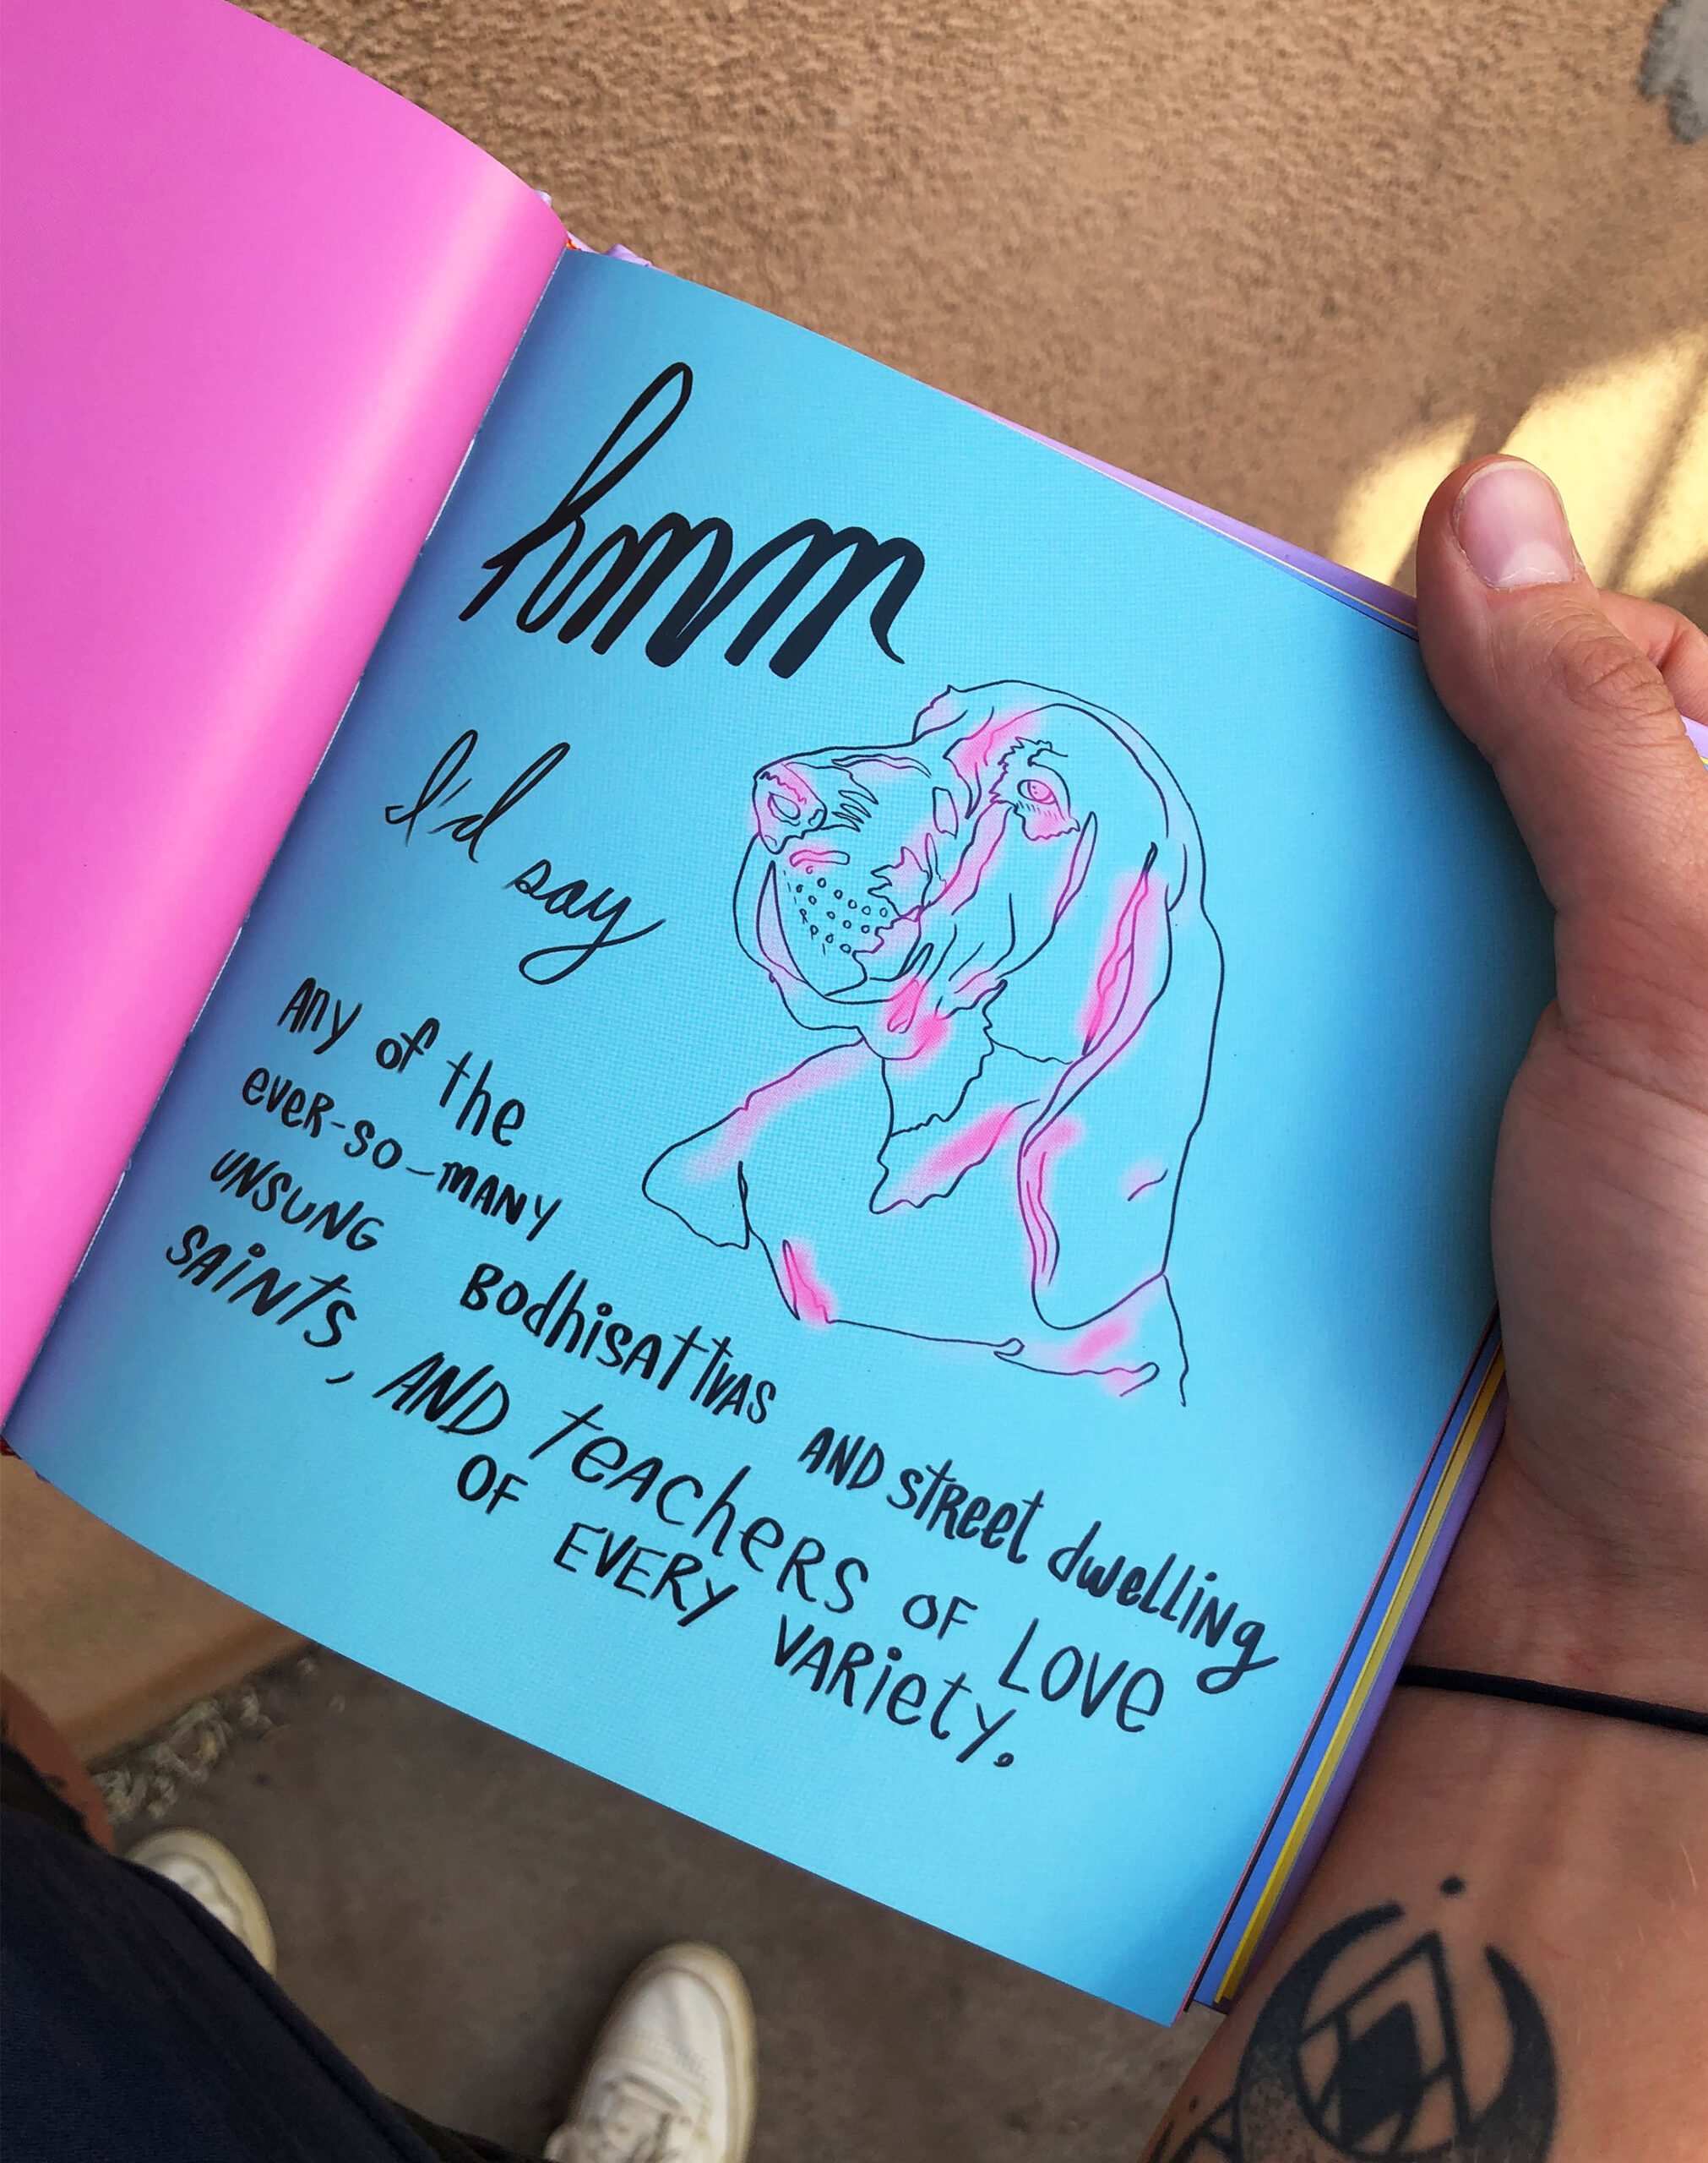 hmm
I'd say
Any of the
eveR-SO-mANY
UNSUNG BodhisAttvAS AND stReet dwelliNg
SAiNtS, AND teAcheRS OF LOVe
OF EVERY VARiety.